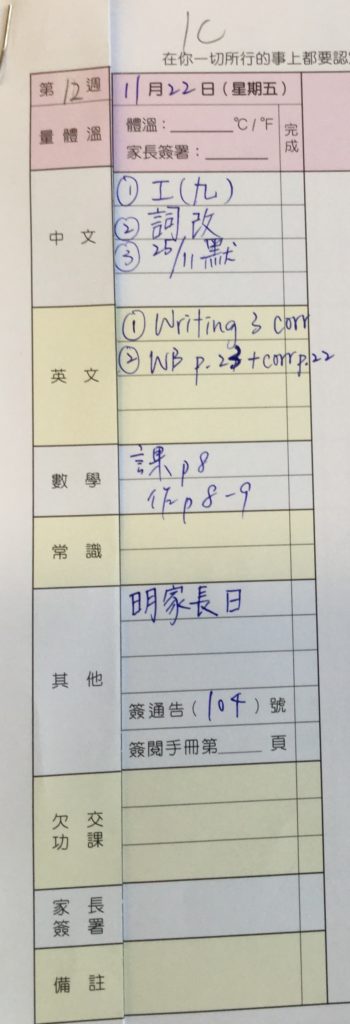 1C
在你一切所行的事上都要認
第12週 11月22日(星期五)
量體溫 體溫:______°C/°F 完成
家長簽署:______
中文 ① 工(九)
② 詞改
③ 25/11默
英文 ① Writing 3 corr
② WB p.23+corr p.22
數學 課p8
作p8-9
常識
其他 明家長日
簽通告(104)號
簽閱手冊第____頁
欠交功課
家長簽署
備註